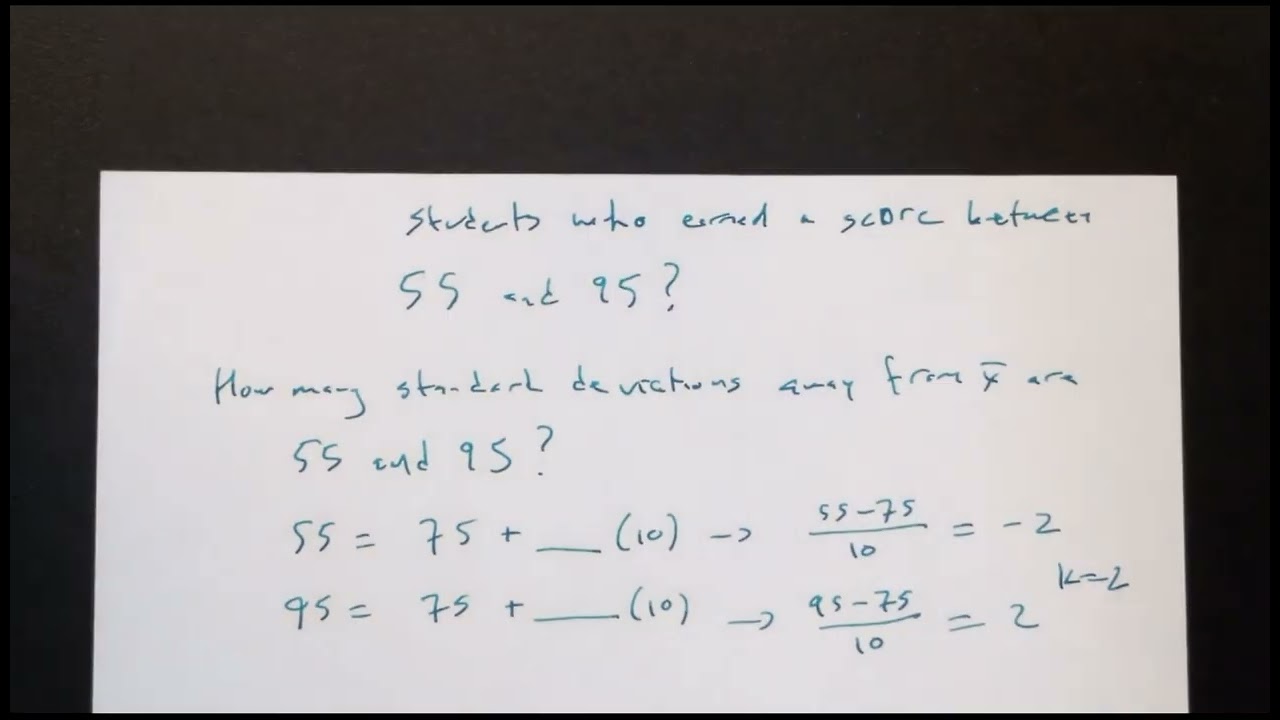 students who earned a score between
55 and 95?
How many standard deviations away from x̄ are
55 and 95?
55 = 75 + ___ (10) → (55-75)/10 = -2
k=2
95 = 75 + ___ (10) → (95-75)/10 = 2